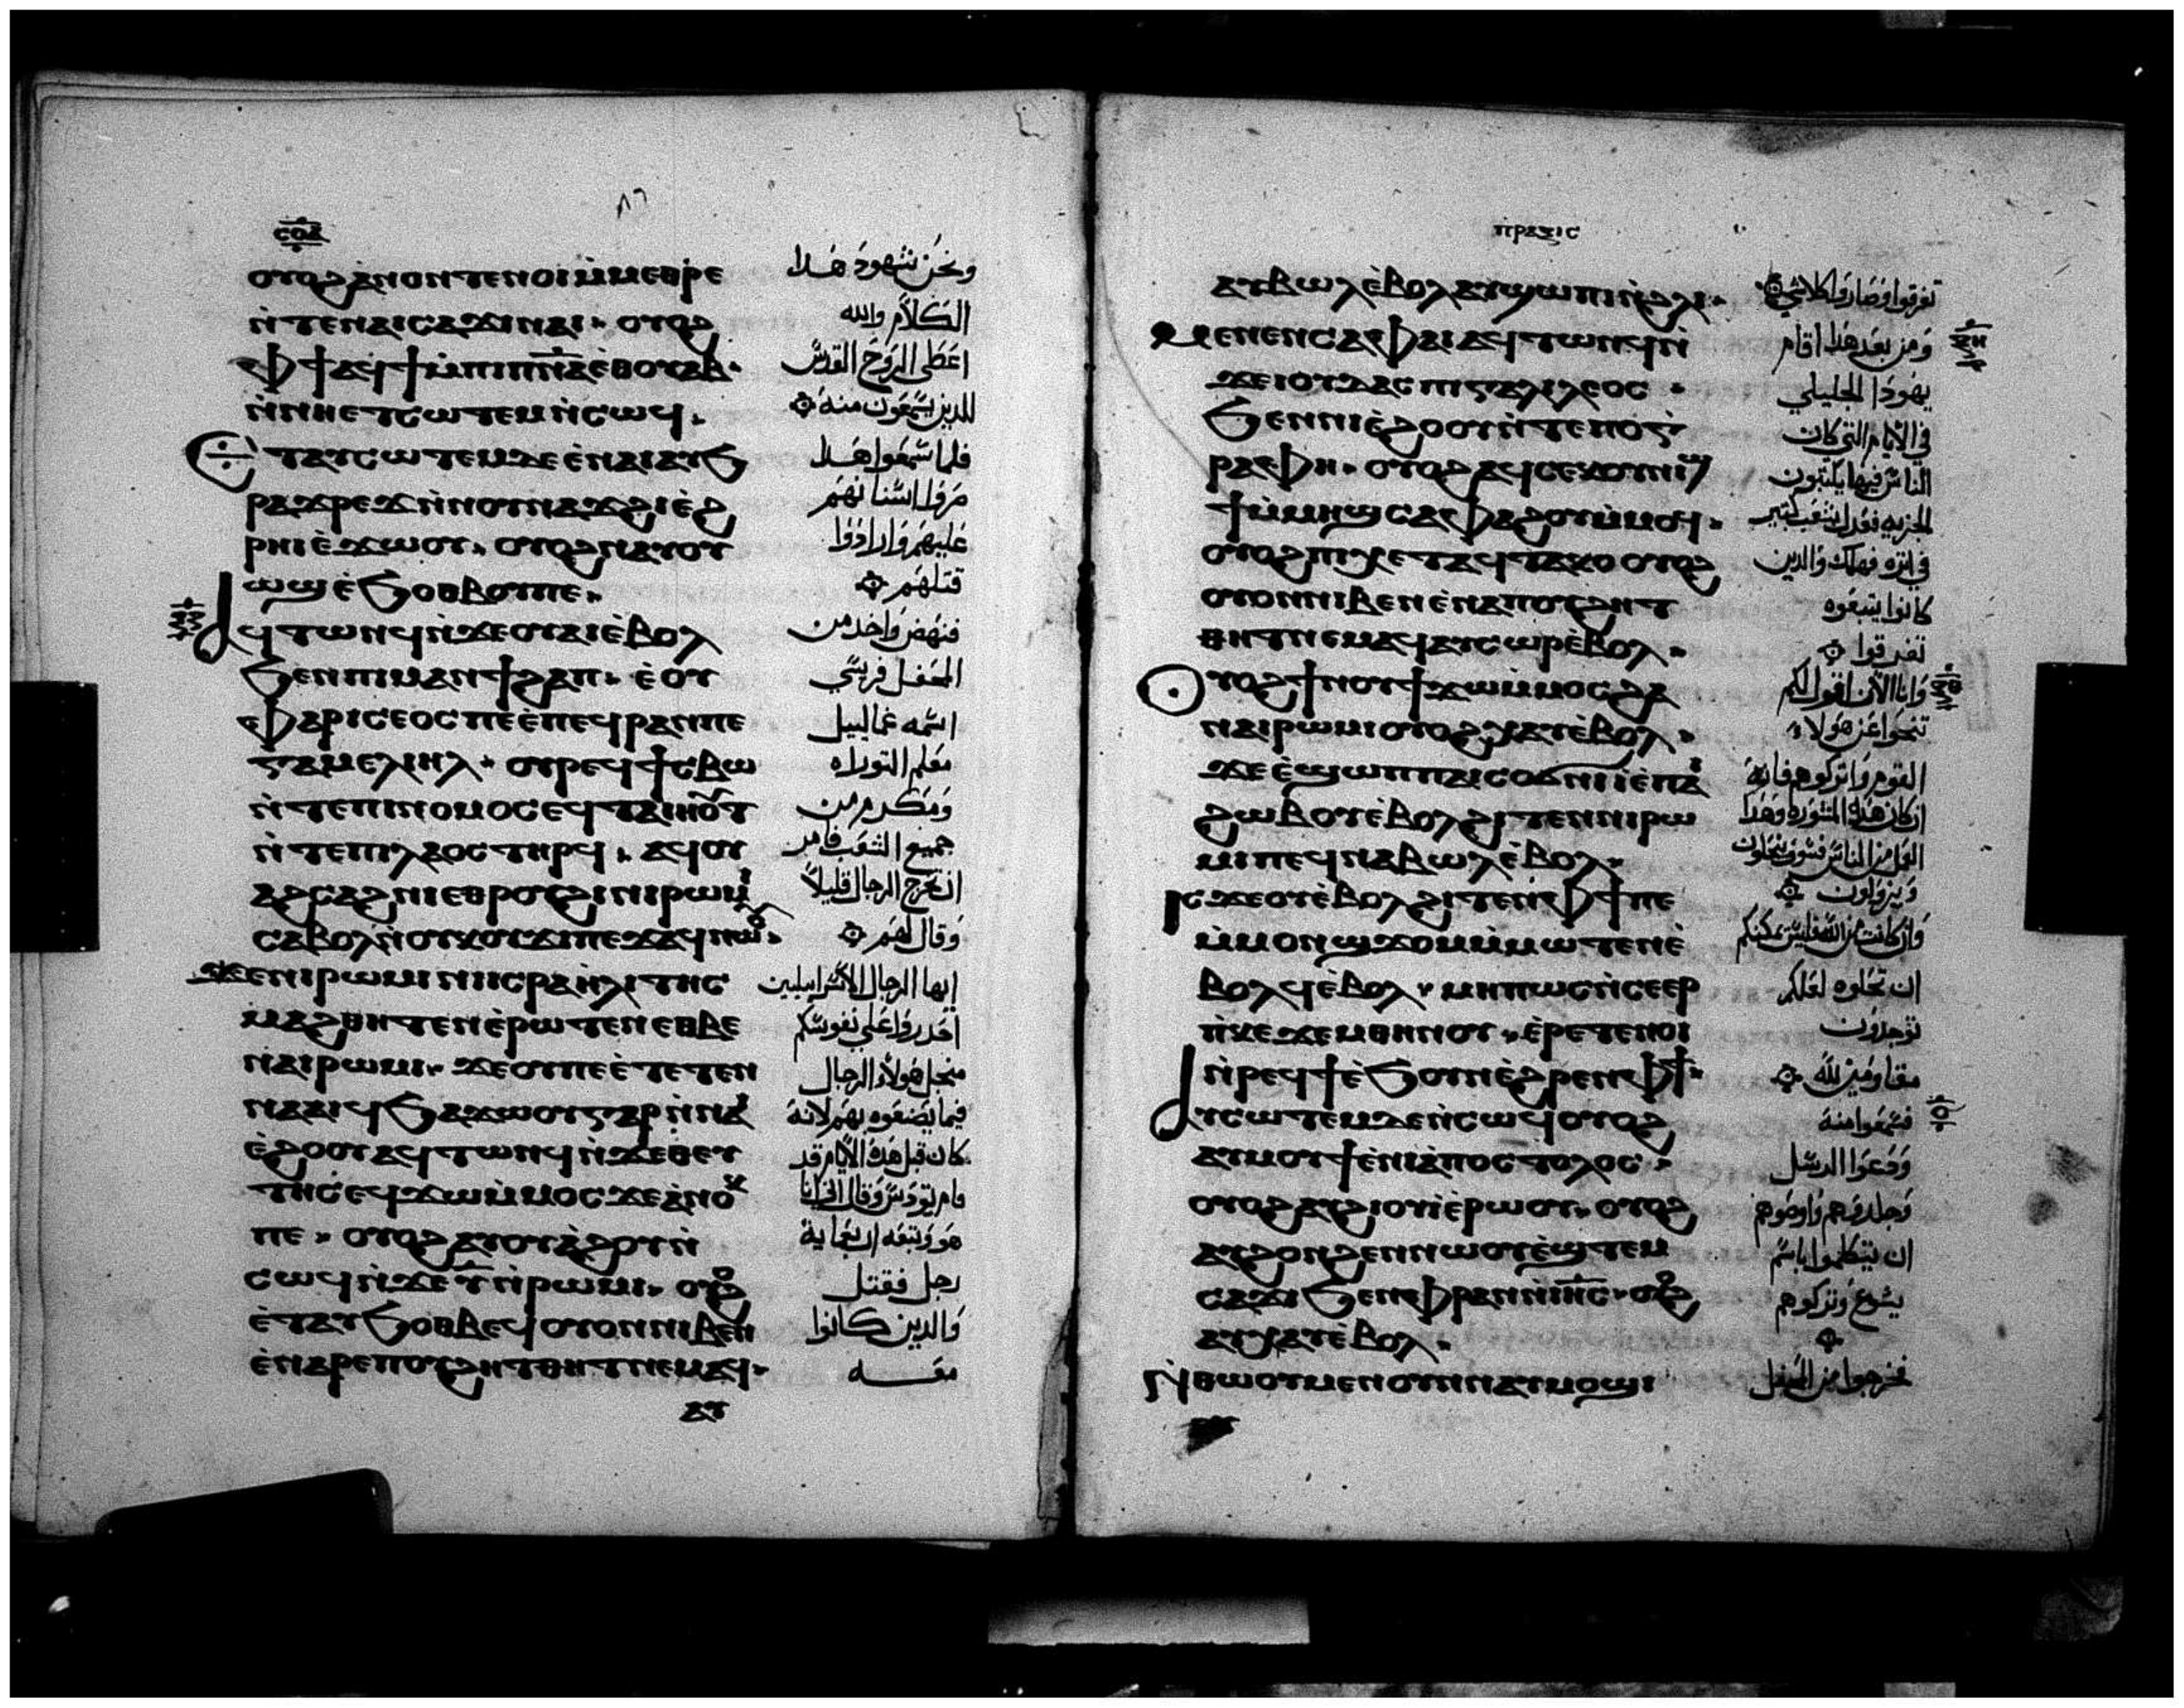 ⲥⲟⲇ
٨٦
ⲟⲩⲟϩ ⲁ̀ⲛⲟⲛ ⲧⲉⲛⲟⲓ ⲙ̀ⲙⲉⲑⲣⲉ
ⲛ̀ⲧⲉ ⲛⲁⲓⲥⲁϫⲓ ⲛⲁⲓ ⲟⲩⲟϩ
ⲫϯ ⲁϥϯ ⲙ̀ⲡⲓⲡⲛ̅ⲁ̅ ⲉ̀ⲑⲟⲩⲁⲃ
ⲛ̀ⲛⲏⲉⲧⲥⲱⲧⲉⲙ ⲛ̀ⲥⲱϥ
ⲉⲧⲁⲩⲥⲱⲧⲉⲙ ⲇⲉ ⲉ̀ⲛⲁⲓ ⲁⲩϧ
ⲣⲁϫⲣⲉϫ ⲛ̀ⲛⲟⲩⲛⲁϫϩⲓ ⲉ̀ϩ
ⲣⲏⲓ ⲉ̀ϫⲱⲟⲩ ⲟⲩⲟϩ ⲛⲁⲩⲟⲩ
ⲱϣ ⲉ̀ϧⲟⲑⲃⲟⲩ ⲡⲉ
ⲁϥⲧⲱⲛϥ ⲛ̀ϫⲉ ⲟⲩⲁⲓ ⲉ̀ⲃⲟⲗ
ϧⲉⲛ ⲡⲓⲙⲁⲛϯϩⲁⲡ ⲉ̀ⲟⲩ
ⲫⲁⲣⲓⲥⲉⲟⲥ ⲡⲉ ⲉ̀ⲡⲉϥⲣⲁⲛ ⲡⲉ
ⲅⲁⲙⲉⲗⲓⲏⲗ ⲟⲩⲣⲉϥϯⲥⲃⲱ
ⲛ̀ⲧⲉ ⲡⲓⲛⲟⲙⲟⲥ ⲉϥⲧⲁⲓⲏⲟⲩⲧ
ⲛ̀ⲧⲉ ⲡⲓⲗⲁⲟⲥ ⲧⲏⲣϥ ⲁϥⲟⲩ
ⲁϩⲥⲁϩⲛⲓ ⲉⲑⲣⲟⲩϩⲓ ⲛⲓⲣⲱⲙⲓ
ⲥⲁⲃⲟⲗ ⲛ̀ⲟⲩⲕⲟⲩϫⲓ ⲡⲉϫⲁϥ ⲛⲱⲟⲩ
ϫⲉ ⲛⲓⲣⲱⲙⲓ ⲛⲓⲓⲥⲣⲁⲏ̀ⲗⲓⲧⲏⲥ
ⲙⲁϩⲑⲏⲧⲉⲛ ⲉ̀ⲣⲱⲧⲉⲛ ⲉⲑⲃⲉ
ⲛⲁⲓⲣⲱⲙⲓ ϫⲉ ⲟⲩ ⲡⲉ ⲉ̀ⲧⲉⲧⲉⲛ
ⲛⲁⲁⲓϥ ϧⲁϫⲱⲟⲩ ⲅⲁⲣ ⲛ̀ⲛⲁⲓ
ⲉ̀ϩⲟⲟⲩ ⲁϥⲧⲱⲛϥ ⲛ̀ϫⲉ ⲑⲉⲩ
ⲧⲏⲥ ⲉϥϫⲱ ⲙ̀ⲙⲟⲥ ϫⲉ ⲁ̀ⲛⲟⲕ
ⲡⲉ ⲟⲩⲟϩ ⲁⲩⲟⲩⲁ̀ϩⲟⲩ ⲛ̀
ⲥⲱϥ ⲛ̀ϫⲉ ⲩ̅ ⲛ̀ⲣⲱⲙⲓ ⲟⲩⲟϩ
ⲉ̀ⲧⲁⲩϧⲟⲑⲃⲉϥ ⲟⲩⲟⲛ ⲛⲓⲃⲉⲛ
ⲉ̀ⲛⲁⲣⲉ ⲡⲟⲩϩⲏⲧ ⲑⲏⲧ ⲛⲉⲙⲁϥ
ⲁⲩ
ونحن شهود هدا
الكلام والله
اعطى الروح القدس
للدين يسمعون منه
فلما سمعوا هدا
عليهم وارادوا
قتلهم
فنهض واحد من
المحفل فريسي
اسمه غمالييل
معلم التوراه
ومكرم من
جميع الشعب فامر
ان تخرج الرجال قليلا
وقال لهم
ايها الرجال الاسراييليين
احدروا على نفوسكم
من اجل هولاء الرجال
فيما يصنعوه بهم لانه
كان قبل هده الايام قد
رجل فقتل
والدين كانوا
معه
ⲡⲣⲁⲝⲓⲥ
ⲁⲩⲃⲱⲗ ⲉ̀ⲃⲟⲗ ⲁⲩϣⲱⲡⲓ ⲛ̀ϩⲗⲓ
ⲙⲉⲛⲉⲛⲥⲁ ⲫⲁⲓ ⲁϥⲧⲱⲛϥ ⲛ̀
ϫⲉ ⲓⲟⲩⲇⲁⲥ ⲡⲓⲅⲁⲗⲓⲗⲉⲟⲥ
ϧⲉⲛ ⲛⲓⲉ̀ϩⲟⲟⲩ ⲛ̀ⲧⲉ ⲡⲟⲅ
ⲣⲁⲫⲏ ⲟⲩⲟϩ ⲁϥⲥⲉⲕ ⲟⲩⲛⲓϣ
ϯ ⲙ̀ⲙⲏϣ ⲥⲁⲫⲁϩⲟⲩ ⲙ̀ⲙⲟϥ
ⲟⲩⲟϩ ⲡⲓⲭⲉⲧ ⲁϥⲧⲁⲕⲟ ⲟⲩⲟϩ
ⲟⲩⲟⲛ ⲛⲓⲃⲉⲛ ⲉ̀ⲛⲁ ⲡⲟⲩϩⲏⲧ
ⲑⲏⲧ ⲛⲉⲙⲁϥ ⲁⲩⲥⲱⲣ ⲉ̀ⲃⲟⲗ
ⲟⲩⲟϩ ϯⲛⲟⲩ ϯϫⲱ ⲙ̀ⲙⲟⲥ ϩⲁ
ⲛⲁⲓⲣⲱⲙⲓ ⲟⲩⲟϩ ⲭⲁⲩ ⲉ̀ⲃⲟⲗ
ϫⲉ ⲉ̀ϣⲱⲡ ⲡⲁⲓⲥⲟϭⲛⲓ ⲓⲉ̀ ⲡⲁⲓ
ϩⲱⲃ ⲟⲩⲉ̀ⲃⲟⲗ ϩⲓⲧⲉⲛ ⲛⲓⲣⲱ
ⲙⲓ ⲡⲉ ϥⲛⲁⲃⲱⲗ ⲉ̀ⲃⲟⲗ
ⲓⲥϫⲉ ⲟⲩⲉ̀ⲃⲟⲗ ϩⲓⲧⲉⲛ ⲫϯ ⲡⲉ
ⲙ̀ⲙⲟⲛ ϣϫⲟⲙ ⲙ̀ⲙⲱⲧⲉⲛ ⲉ̀
ⲃⲟⲗϥ ⲉ̀ⲃⲟⲗ ⲙⲏⲡⲱⲥ ⲛ̀ⲥⲉⲉⲣ
ⲡ̀ⲕⲉϫⲉⲙ ⲑⲏⲛⲟⲩ ⲉ̀ⲣⲉⲧⲉⲛⲟⲓ
ⲛ̀ⲣⲉϥϯ ⲉ̀ϧⲟⲩⲛ ⲉ̀ϩⲣⲉⲛ ⲫϯ
ⲁⲩⲥⲱⲧⲉⲙ ⲇⲉ ⲛ̀ⲥⲱϥ ⲟⲩⲟϩ
ⲁⲩⲙⲟⲩϯ ⲉ̀ⲛⲓⲁ̀ⲡⲟⲥⲧⲟⲗⲟⲥ
ⲟⲩⲟϩ ⲁⲩϩⲓⲟⲩⲓ̀ ⲉ̀ⲣⲱⲟⲩ ⲟⲩⲟϩ
ⲁⲩϩⲟⲛϩⲉⲛ ⲛⲱⲟⲩ ⲉ̀ϣⲧⲉⲙ
ⲥⲁϫⲓ ϧⲉⲛ ⲫⲣⲁⲛ ⲛ̀ⲓⲏ̅ⲥ̅ ⲟⲩⲟϩ
ⲁⲩⲭⲁⲩ ⲉ̀ⲃⲟⲗ
ⲛ̀ⲑⲱⲟⲩ ⲙⲉⲛ ⲟⲩⲛ ⲛⲁⲩⲙⲟϣⲓ
تفرقوا وصاروا كلاشي
ومن بعد هدا اقام
يهودا الجليلي
في الايام التي كان
الناس فيها يكتتبون
في اتره فهلك والدين
كانوا يتبعوه
تفرقوا
وانا الان اقول لكم
تنحوا عن هولاء
القوم واتركوهم فانه
ان كان هده المشوره وهدا
ويزولون
ان تحلوه لعلكم
توجدون
مقاومين لله
فسمعوا منه
ودعوا الرسل
وجلدوهم واوصوهم
ان يتكلموا باسم
يسوع وتركوهم
فخرجوا من المحفل
ⲝⲏ
ⲝⲑ
ⲟ